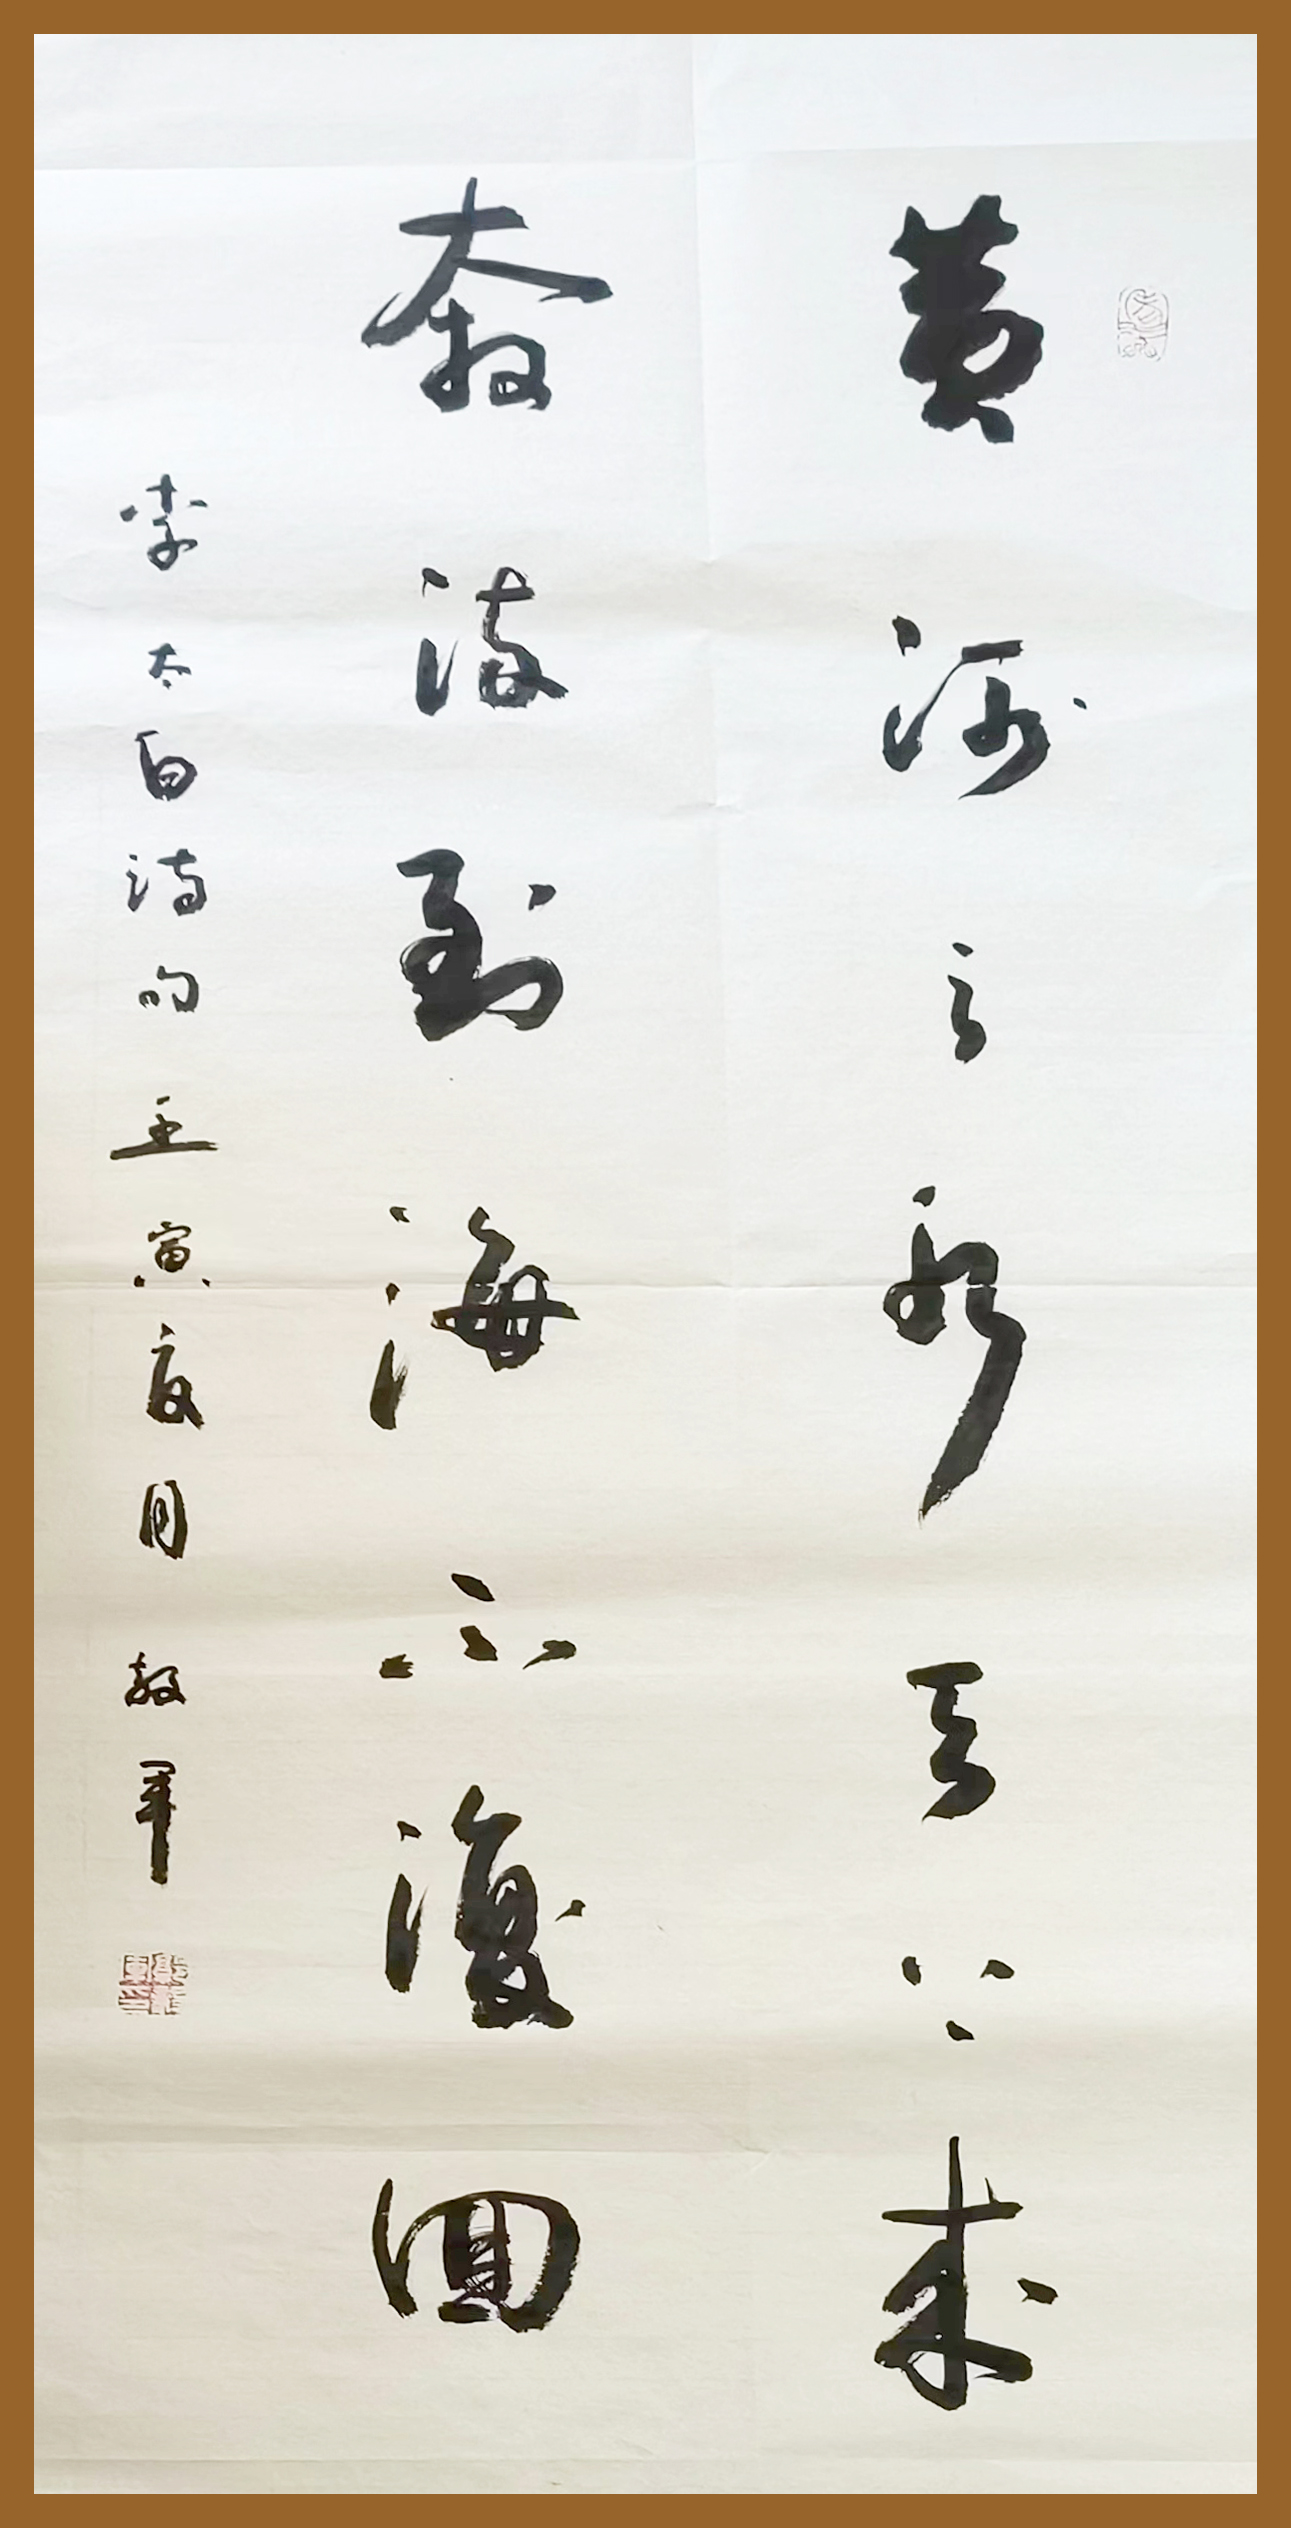 黄河之水天上来
奔流到海不復回
李太白詩句壬寅夏月敬軍